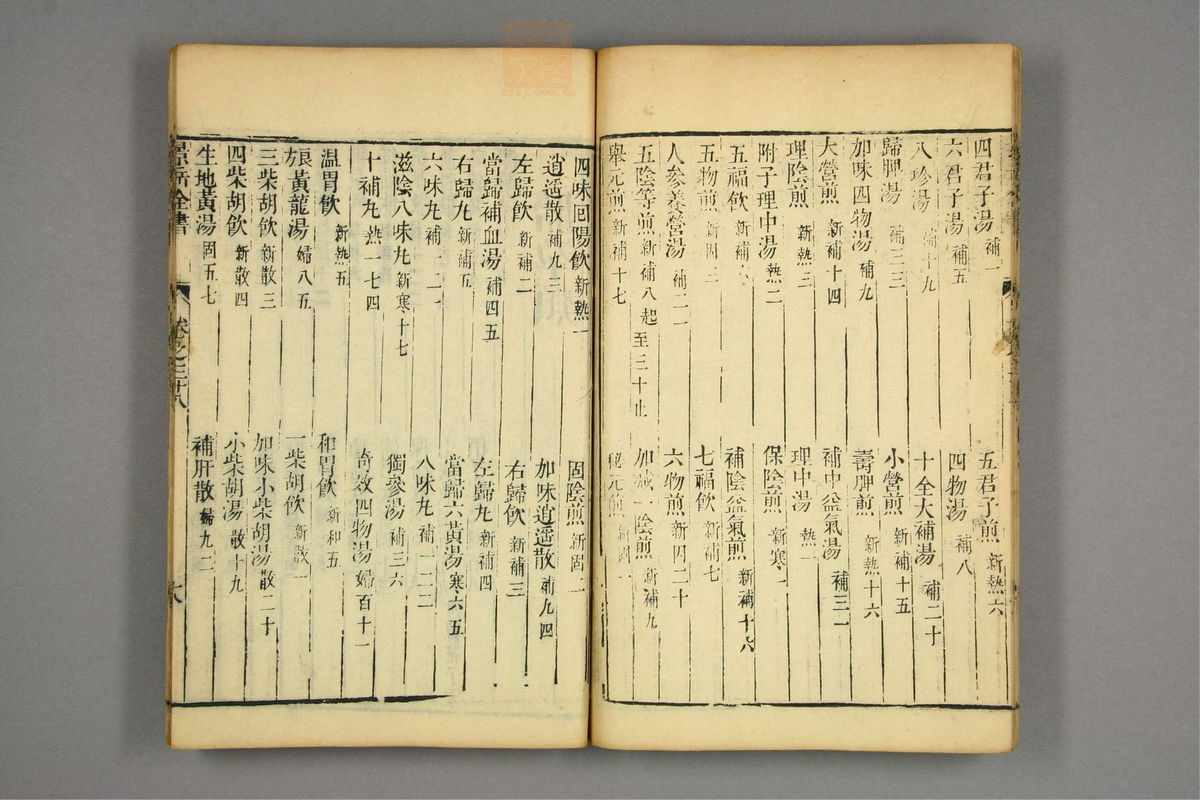 四君子湯 補一　五君子煎 新熱六
六君子湯 補五　四物湯 補八
八珍湯 補十九　十全大補湯 補二十
歸脾湯 補三三　小營煎 新補十五
加味四物湯 補九　壽脾煎 新熱十六
大營煎 新補十四　補中益氣湯 補三一
理陰煎 新熱三　理中湯 熱一
附子理中湯 熱二　保陰煎 新寒一
五福飲 新補六　補陰益氣煎 新補十六
五物煎 新因三　七福飲 新補七
人參養營湯 補二一　六物煎 新因二十
五陰等煎 新補八起至三十止　加減一陰煎 新補九
舉元煎 新補十七　秘元煎 新固一
四味回陽飲 新熱一　固陰煎 新固二
逍遥散 補九三　加味逍遥散 補九四
左歸飲 新補二　右歸飲 新補三
當歸補血湯 補四五　左歸丸 新補四
右歸丸 新補五　當歸六黃湯 寒六五
六味丸 補一二一　八味丸 補一二二
滋陰八味丸 新寒十七　獨參湯 補三六
十補丸 熱一七四　奇效四物湯 婦百十一
温胃飲 新熱五　和胃飲 新和五
良方黃龍湯 婦八五　一柴胡飲 新散一
三柴胡飲 新散三　加味小柴胡湯 散二十
四柴胡飲 新散四　小柴胡湯 散十九
生地黃湯 固五七　補肝散 婦九二
景岳全書　卷之三十八